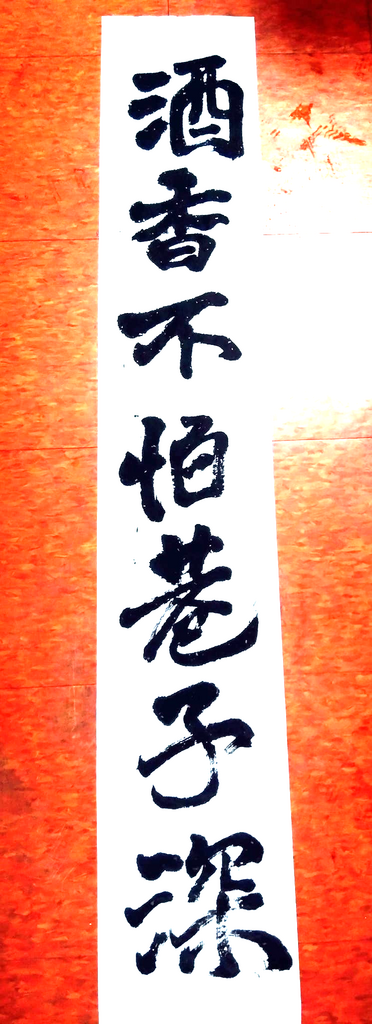 酒香不怕巷子深